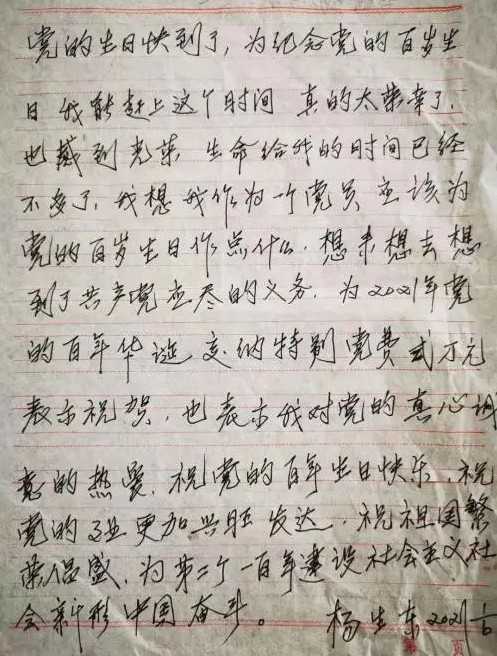 党的生日快到了，为纪念党的百岁生
日 我能赶上这个时间 真的太荣幸了.
也感到光荣 生命给我的时间已经
不多了，我想我作为一个党员 应该为
党的百岁生日作点什么. 想来想去 想
到了共产党应尽的义务. 为2021年党
的百年华诞 交纳特别党费贰万元
表示祝贺，也表示我对党的真心诚
意的热爱. 祝党的百年生日快乐，祝
党的 更加兴旺发达. 祝祖国繁
荣昌盛. 为第二个一百年建设社会主义社
会新 中国奋斗。 杨生东 2021
页